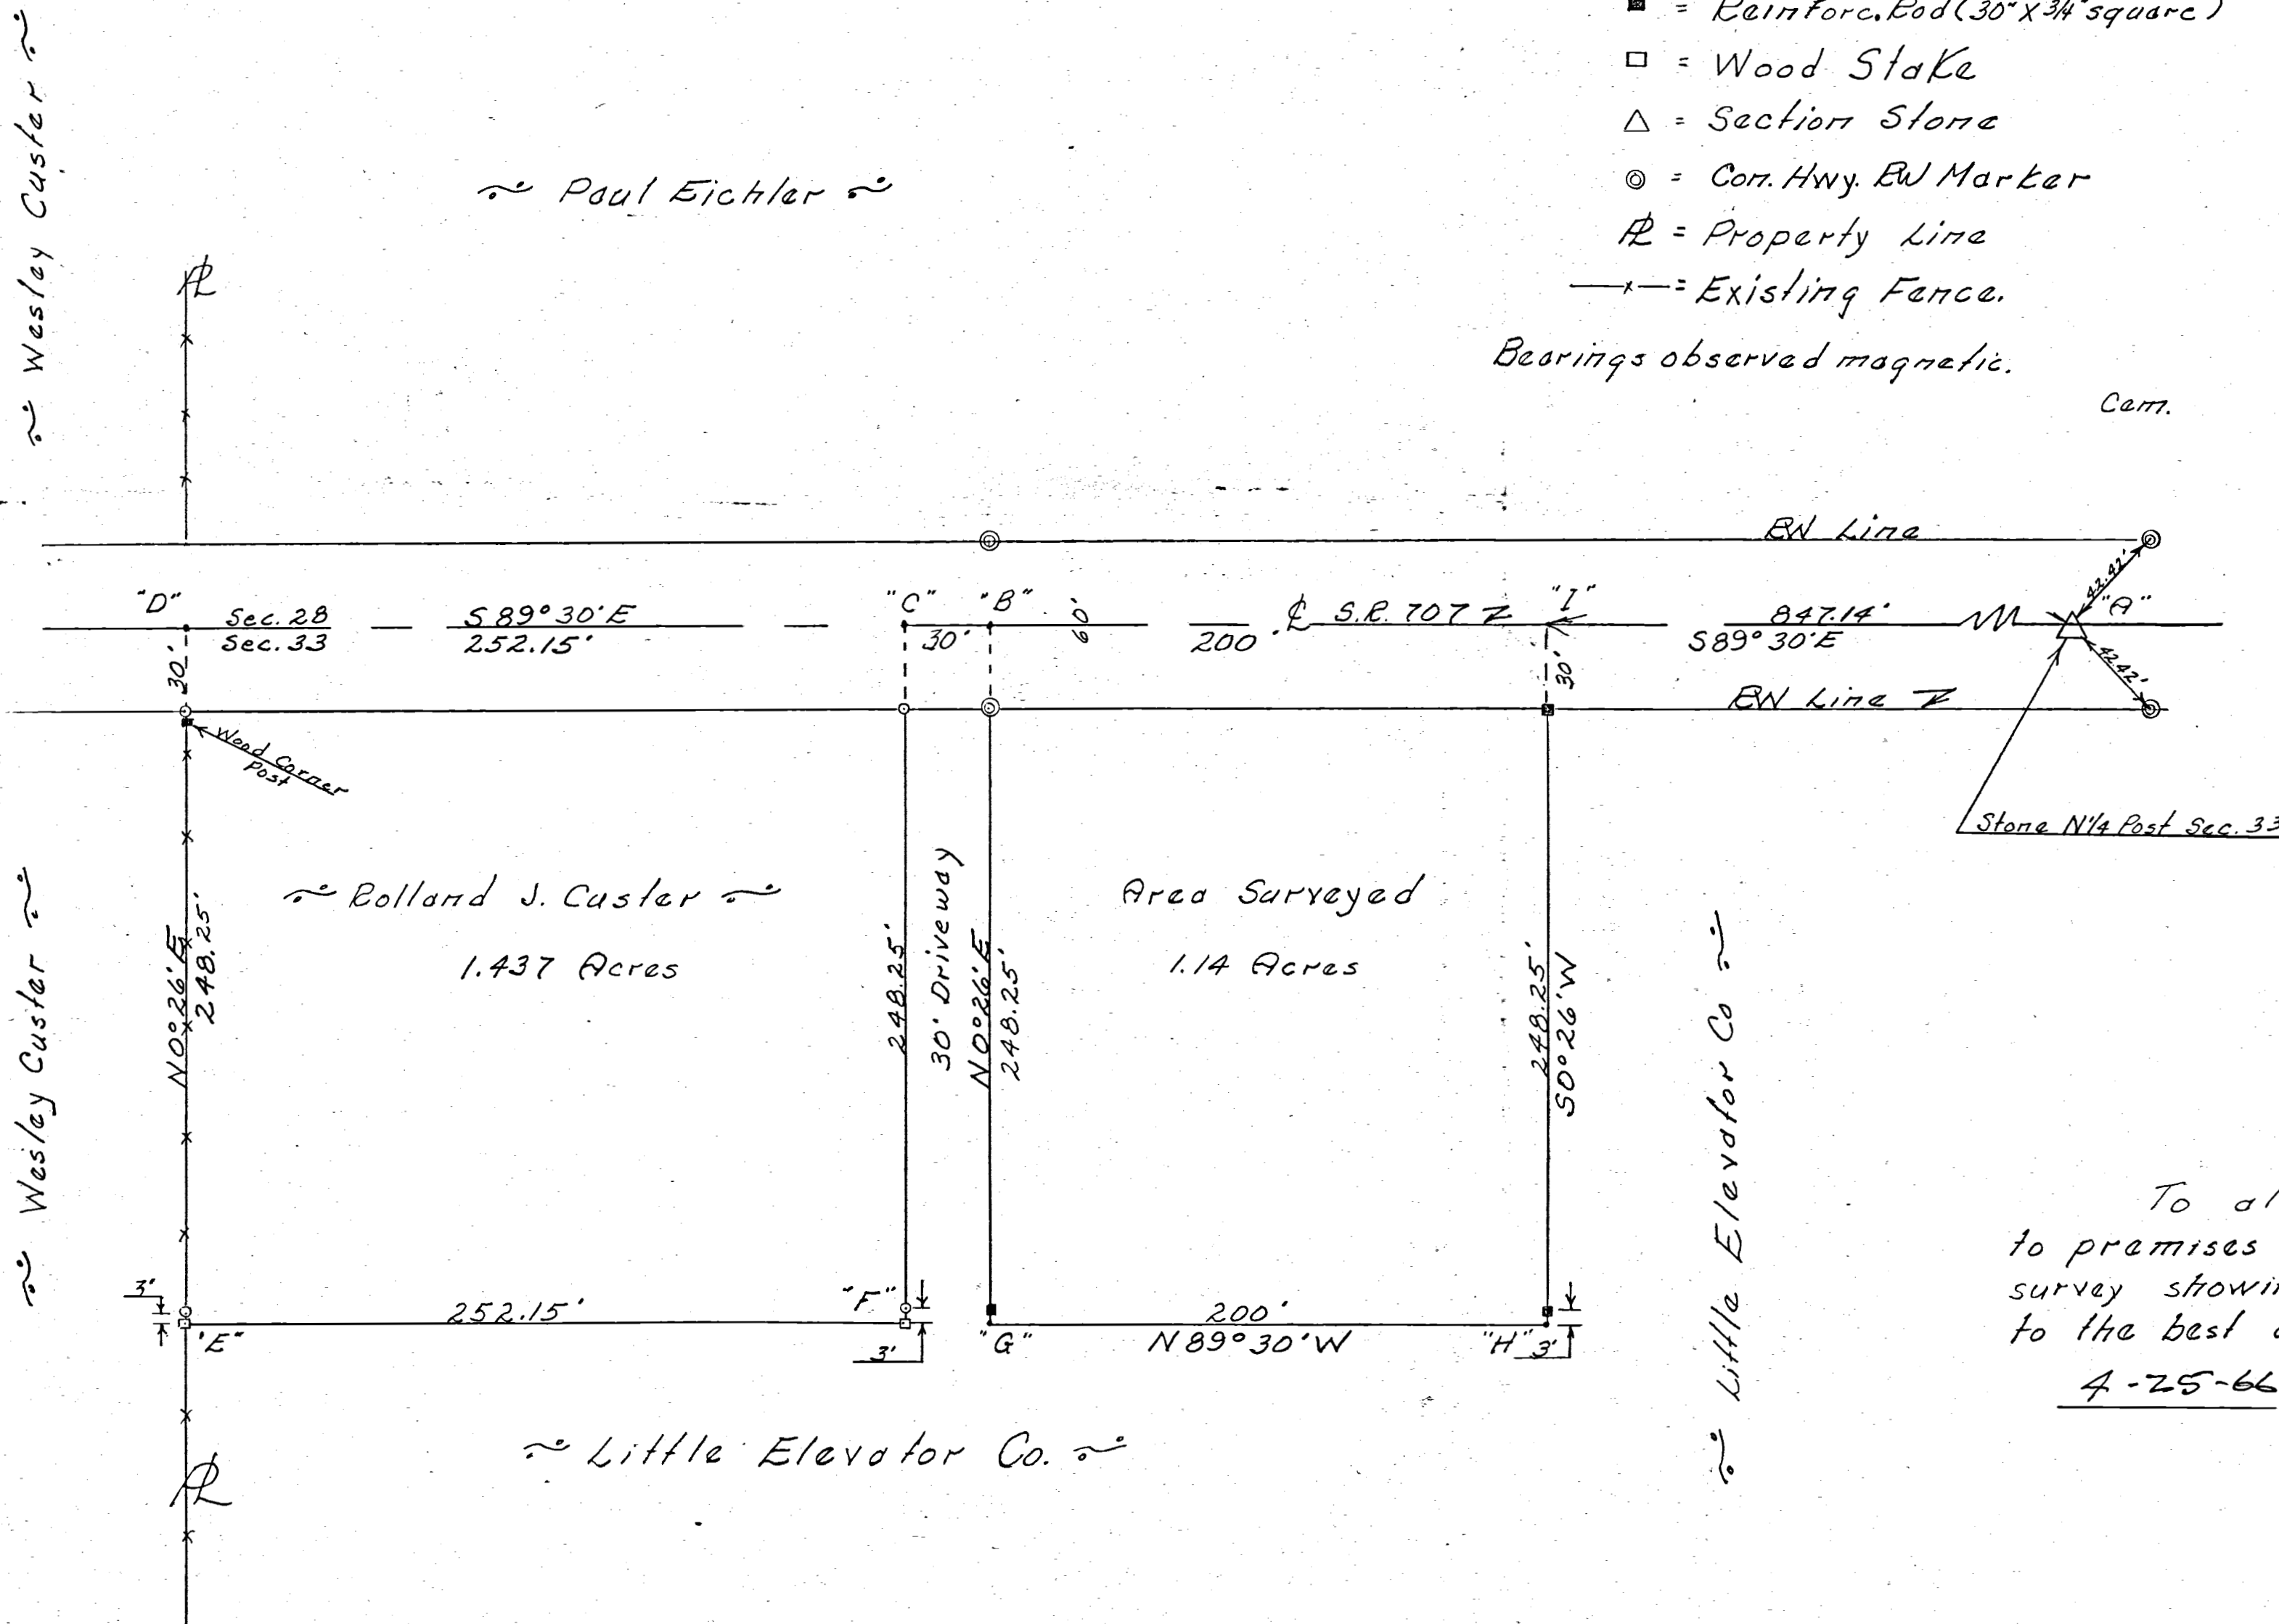 ■ = Reinforc. Rod (30" x 3/4" square)
□ = Wood Stake
△ = Section Stone
◎ = Con. Hwy. RW Marker
PL = Property Line
—x— = Existing Fence.
Bearings observed magnetic.
Cem.
~ Wesley Custer ~
~ Paul Eichler ~
PL
RW Line
"D"
Sec. 28
Sec. 33
S 89° 30' E
252.15'
"C"
"B"
30'
60'
200
℄ S.R. 707
"I"
847.14'
S 89° 30' E
"A"
42.42'
42.42'
30'
30'
RW Line
Wood Corner
Post
Stone N 1/4 Post Sec. 33
~ Wesley Custer ~
N 0° 26' E
248.25'
~ Rolland J. Custer ~
1.437 Acres
248.25'
30' Driveway
N 0° 26' E
248.25'
Area Surveyed
1.14 Acres
248.25'
S 0° 26' W
~ Little Elevator Co ~
3'
"E"
252.15'
"F"
3'
"G"
200'
N 89° 30' W
"H"
3'
~ Little Elevator Co. ~
PL
To al
to premises
survey showi
to the best
4-25-66